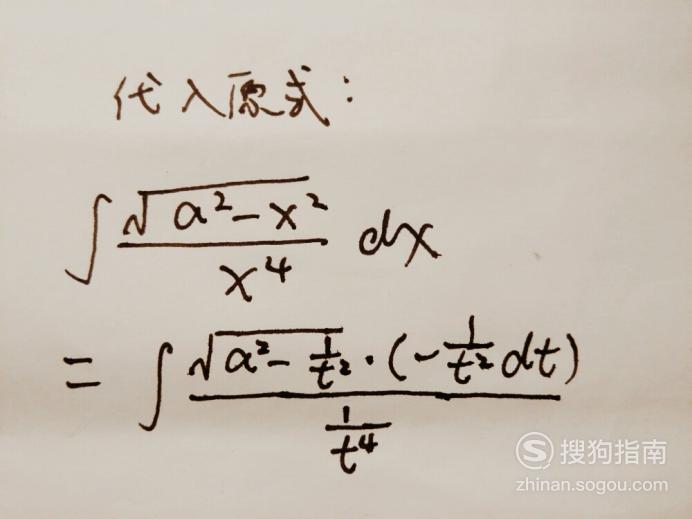 代入原式：
∫ √(a²-x²) / x⁴ dx
= ∫ √(a²-1/t²)·(-1/t² dt) / (1/t⁴)
搜狗指南
zhinan.sogou.com